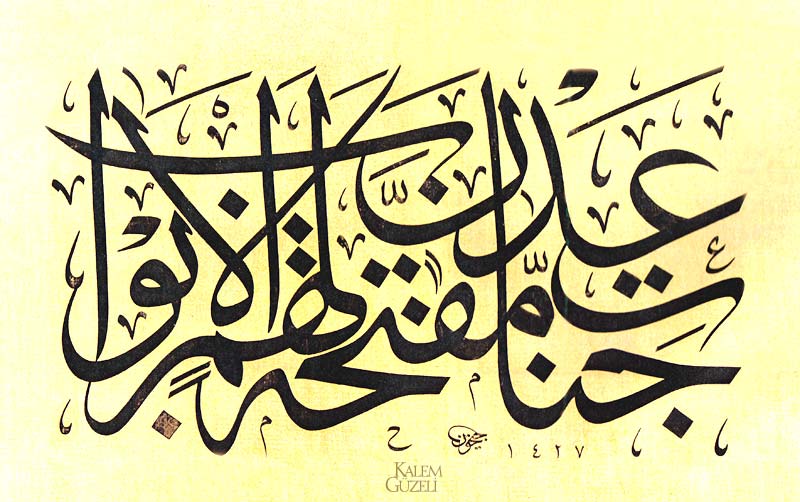 جَنَّاتِ عَدْنٍ مُّفَتَّحَةً لَّهُمُ الْأَبْوَابُ
١٤٢٧
KALEM
GÜZELİ